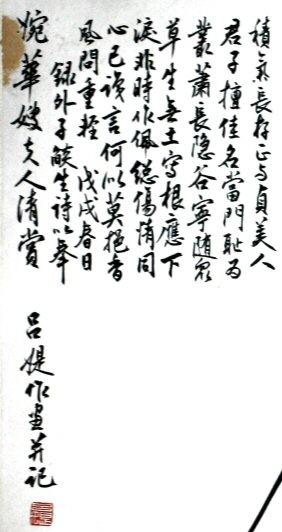 積氣長存正与貞美人
君子擅佳名當門耻为
叢蕭長隐谷寧随眾
草生無土寫根應下
淚非時作佩總傷情同
心已誤言何以莫挹香
風問重輕 戊戌春日
録外子生詩以奉
婉華嫂夫人清賞
吕媞作畫并記